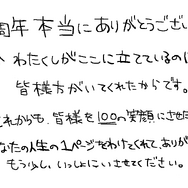 周年 本当にありがとうござい
わたくしがここに立てているの
皆様方がいてくれたからです。
これからも、皆様を100の笑顔にさせた
なたの人生の1ページをわけてくれて、ありが
もう少し、いっしょにいさせてください。